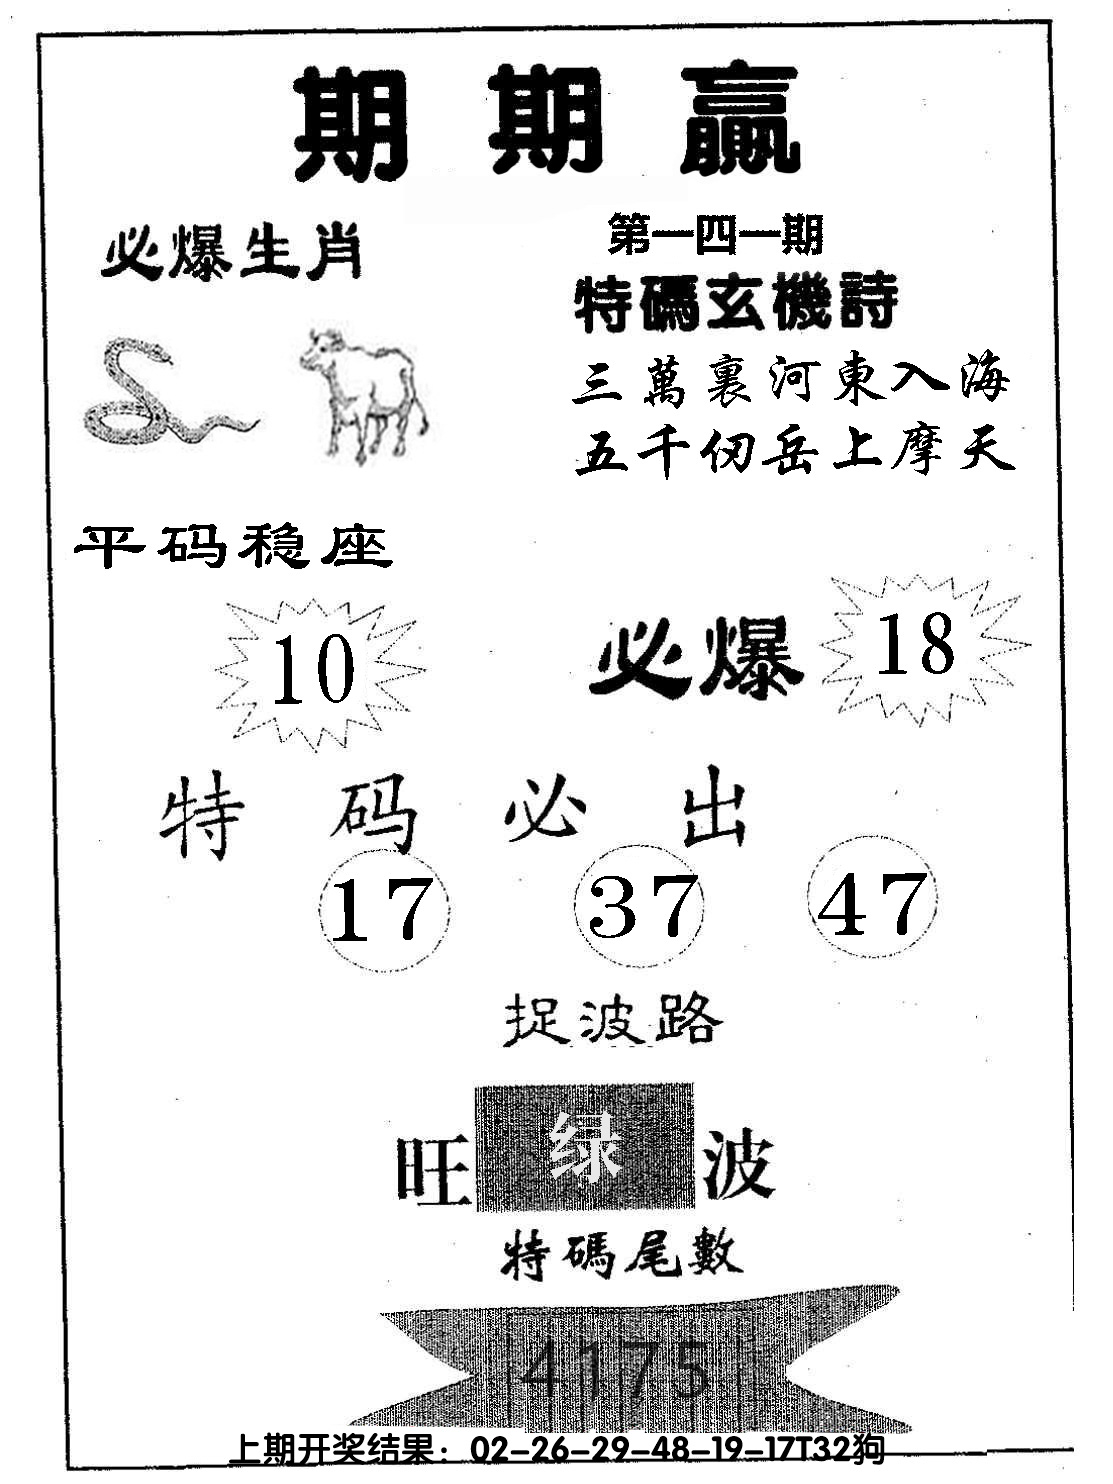 期期赢
必爆生肖
第一四一期
特碼玄機詩
三萬裏河東入海
五千仞岳上摩天
平码稳座
10
必爆
18
特码必出
17 37 47
捉波路
旺 绿 波
特碼尾數
4175
上期开奖结果：02-26-29-48-19-17T32狗